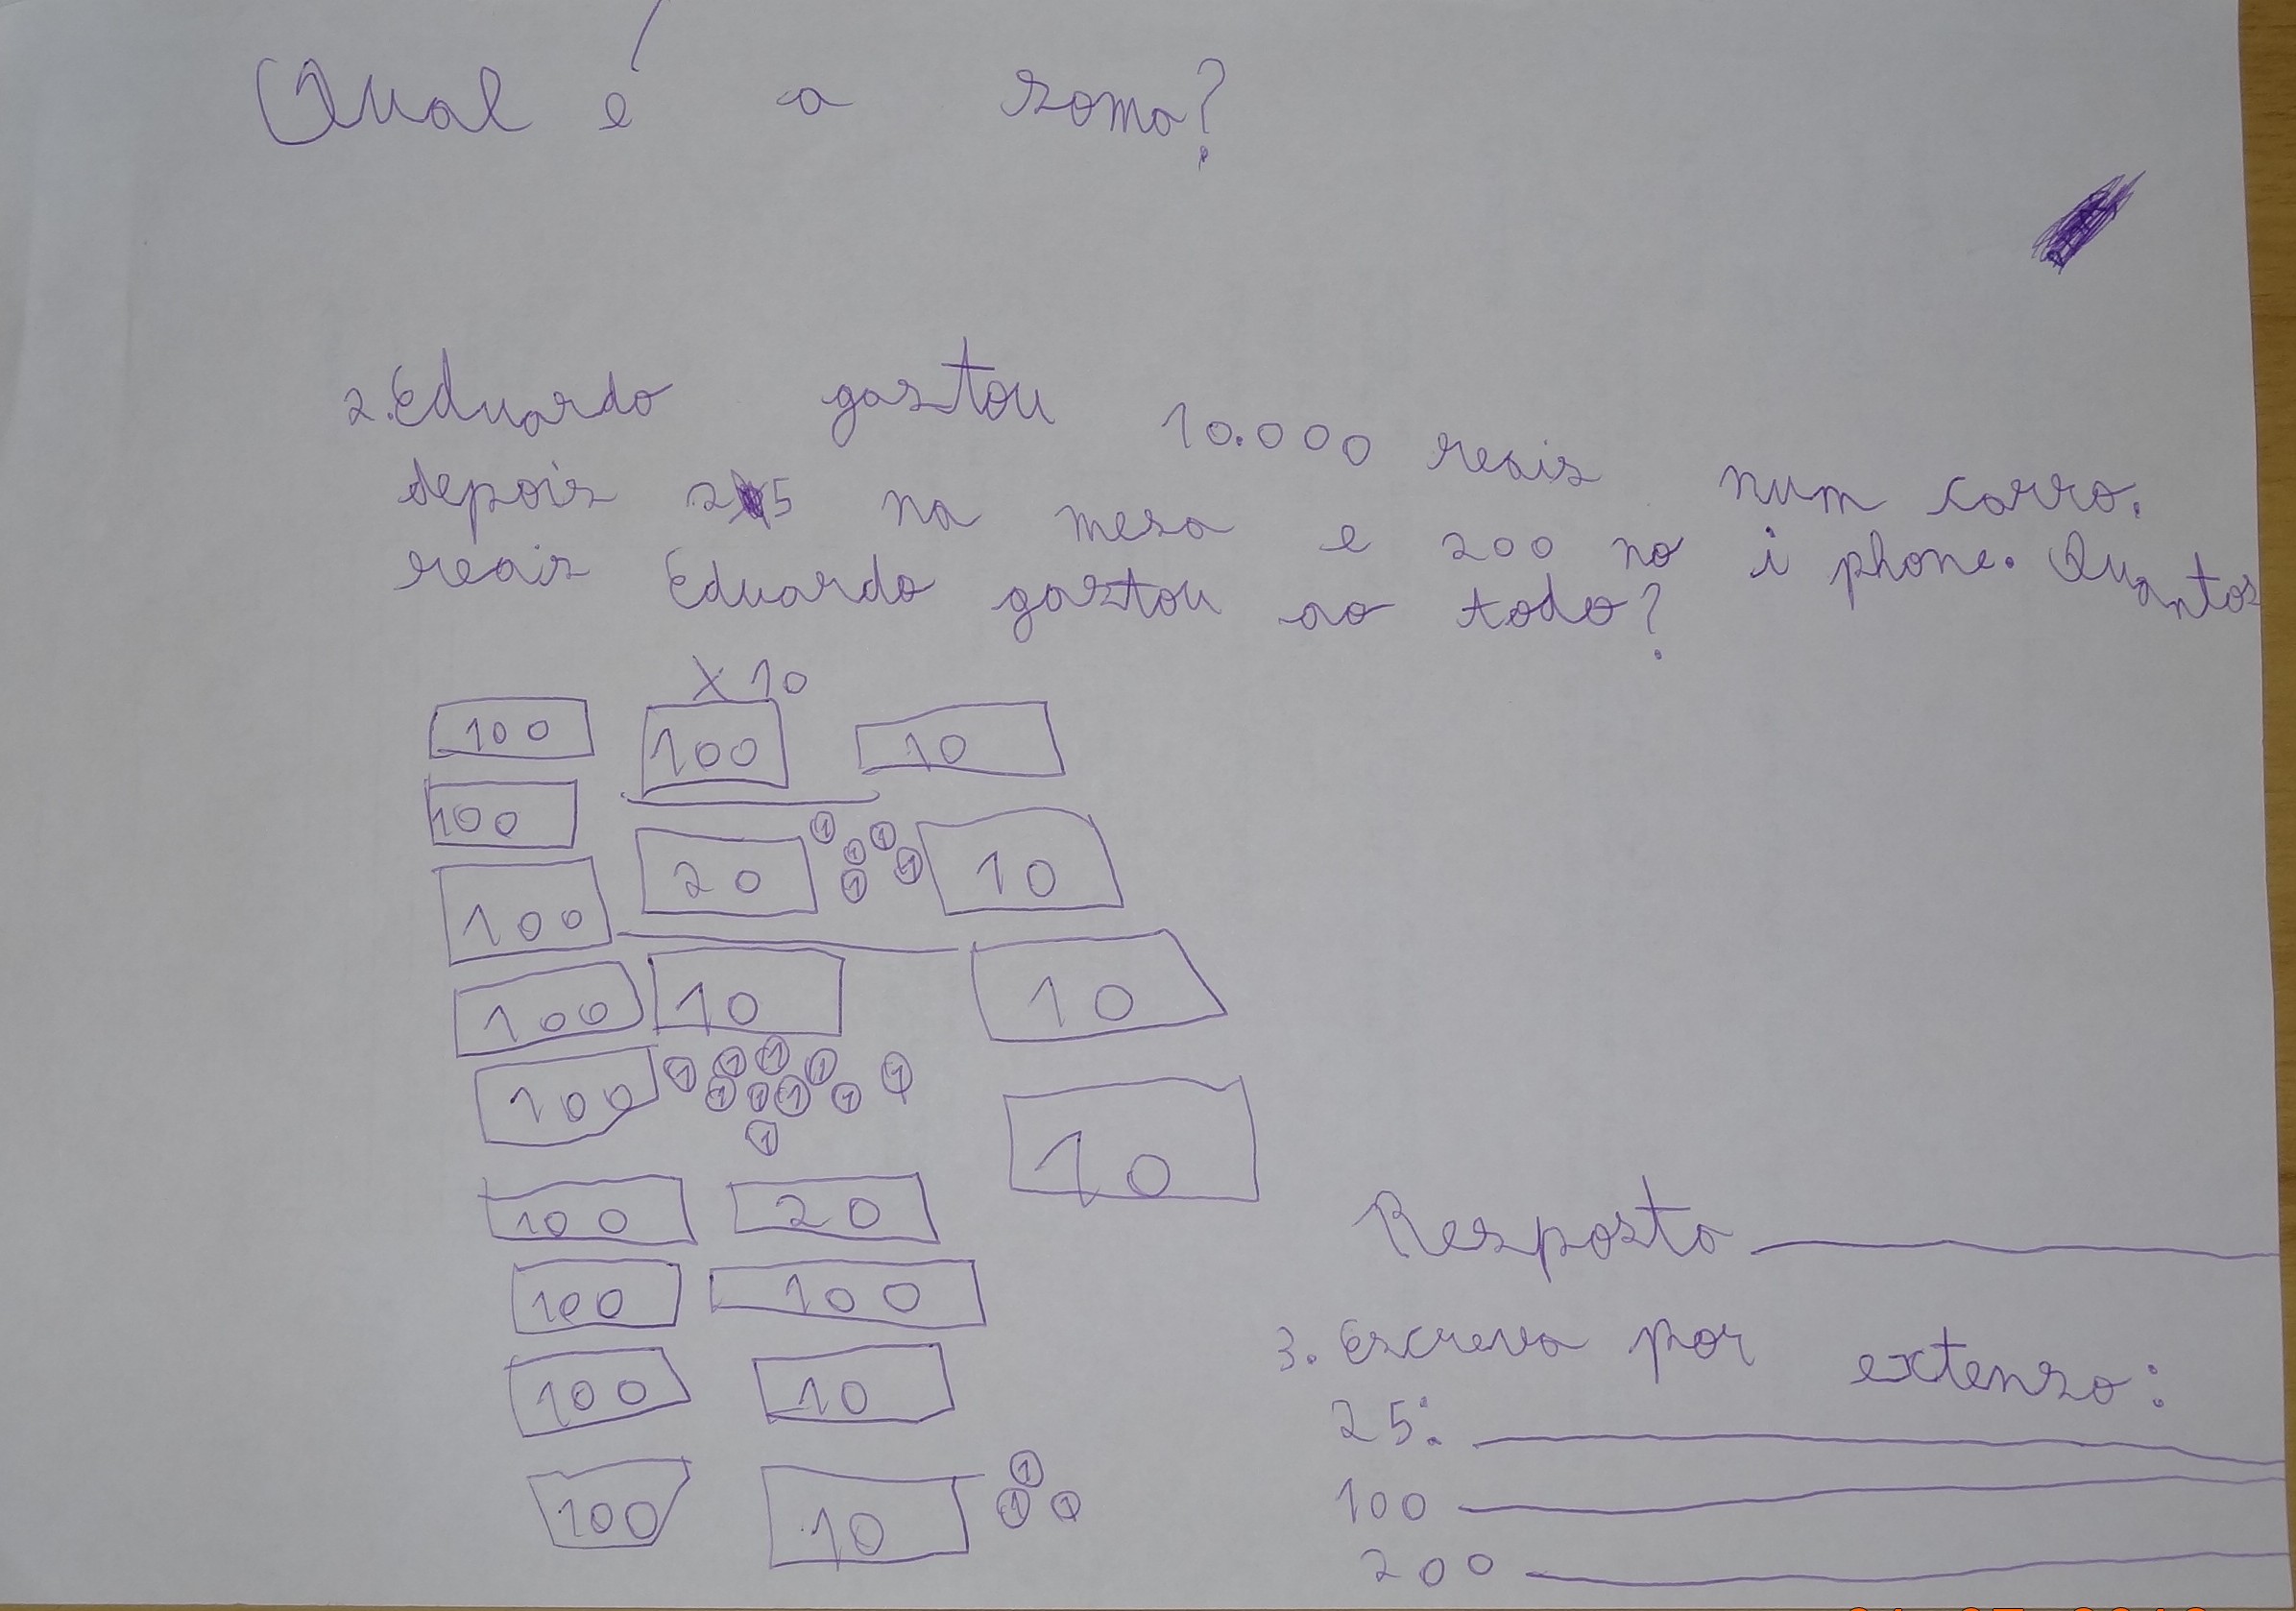 Qual é a soma?
2. Eduardo gastou 10.000 reais num carro.
depois 25 na mesa e 200 no i phone. Quantos
reais Eduardo gastou ao todo?
X 10
100 100 10
100
20 1 1 1 1 1 10
100
100 10 10
100 1 1 1 1 1 1 1 1 1 1
10
100 20
100 100
100 10
100 10 1 1 1
Resposta
3. Escreva por extenso:
25:
100
200